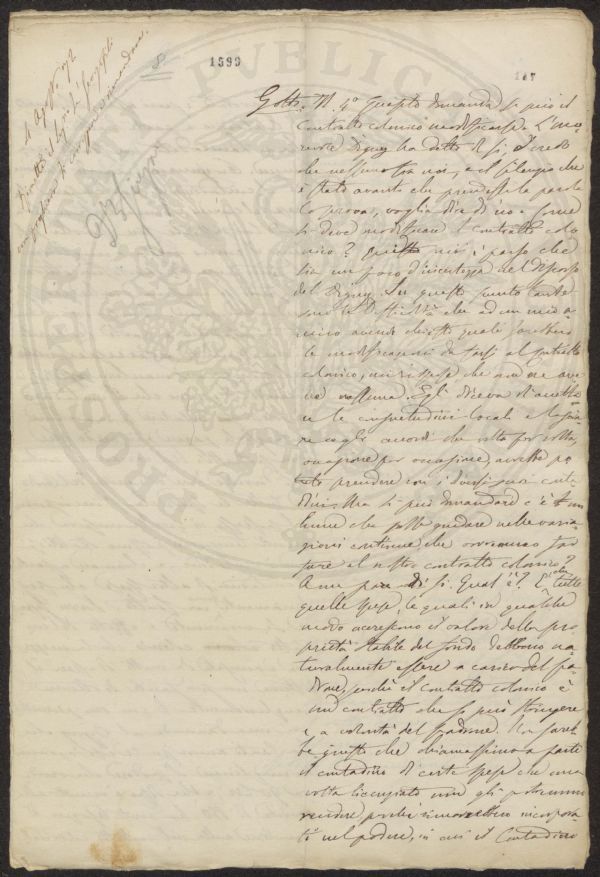 1599
8
147
4 Agosto 72
Gotti. Il 4º Quesito domanda se può il
Contratto colonico modificarsi. L'ono-
revole Digny ha detto di sì. Credo
che nessuno tra noi, e il silenzio che
è stato avanti che prendesse la parola
lo prova, voglia dire di no. Come
si deve modificare il contratto colo
nico? Qui mi è parso che
sia un poco d'incertezza nel discorso
del Digny. Su questo punto
difficoltà che ad un mio a-
mico avendo chiesto quali sarebbero
le modificazioni da farsi al contratto
colonico, mi rispose che non ne ave
va nessuna. Egli diceva di
le consuetudini locali e
re cogli accordi che volta per volta,
occasione per occasione, avrebbe po
tuto prendere con i diversi suoi conta
dini. Ma si può domandare c'è un
lume che possa guidare nelle varia-
zioni continue che avremmo da
fare al nostro contratto colonico?
A me pare di sì. Qual'è? È che tutte
quelle spese, le quali in qualche
modo accrescono il valore della pro
prietà stabile del fondo debbono na
turalmente essere a carico del pa
drone, perchè il contratto colonico è
un contratto che si può sciogliere
a volontà del padrone. Non sareb
be giusto che chiamassimo a parte
il contadino di certe spese che una
volta licenziato non gli potremmo
rendere, perchè rimarrebbero incorpora
ti nel podere, in cui il Contadino